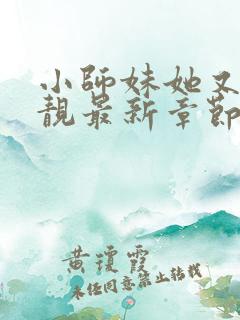 小師妹她又
靚最新章節
黄瓊霞
未任同意禁止转载